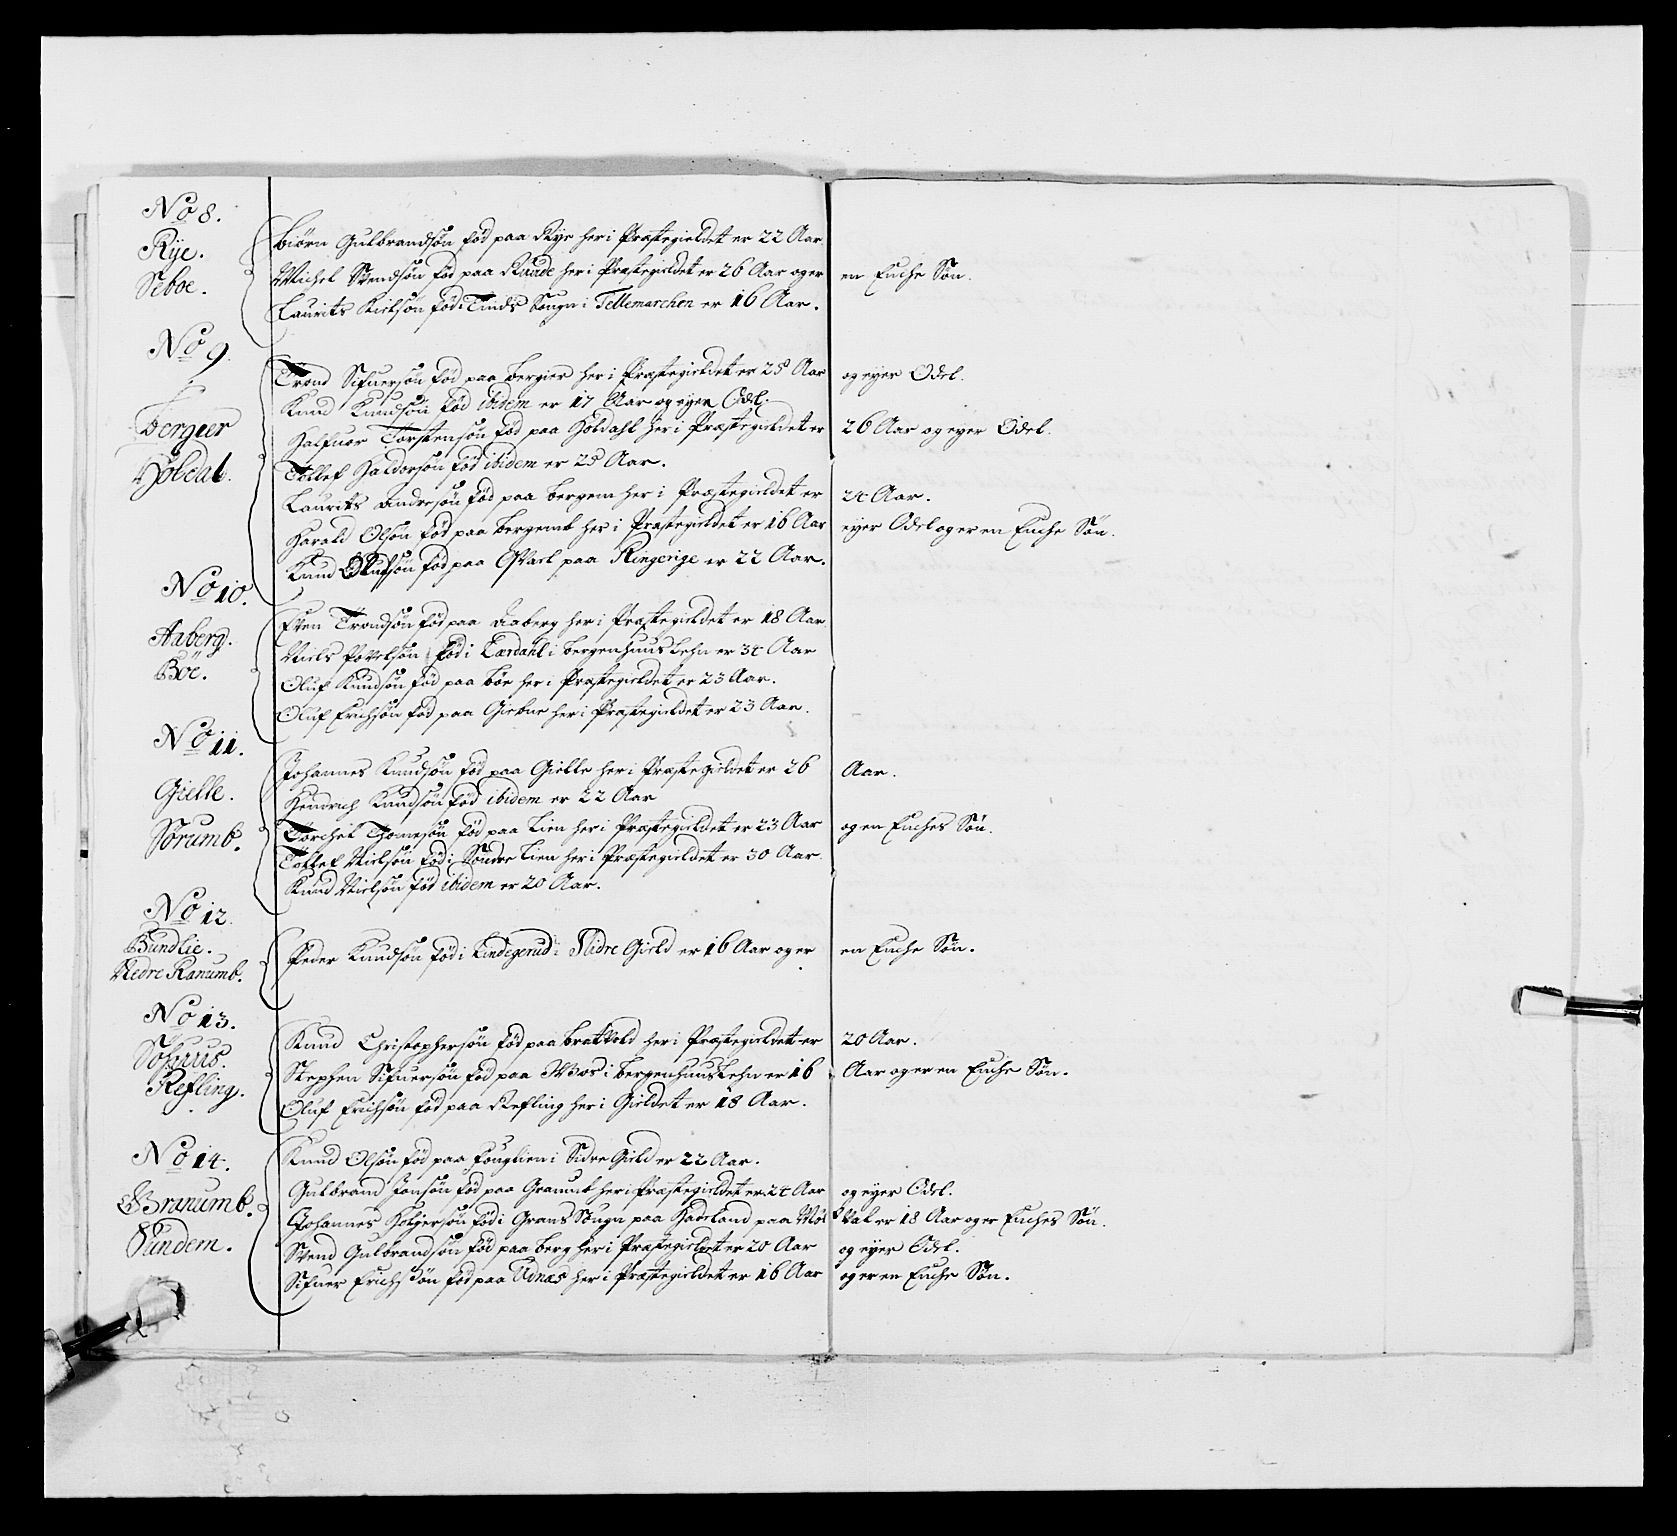 No 8.
Rye.
Seboe.
Biørn Gulbrandsøn fød paa Rye her i Præstegieldet er 22 Aar
Michel Svendsøn fød paa Ruude her i Præstegieldet er 26 Aar og er en Enche Søn.
Laurits Kielsøn fød i Tinds Sougn i Tellemarchen er 16 Aar.
No 9.
Bergier
Holdal.
Trond Sifuersøn fød paa Bergier her i Præstegieldet er 25 Aar og eyer Odel.
Knud Knudsøn fød ibidem er 17 Aar og eyer Odel.
Halfuor Torstensøn fød paa Holdahl her i Præstegieldet er 26 Aar og eyer Odel.
Tollef Haldorsøn fød ibidem er 25 Aar.
Laurits Andresøn fød paa Bergem her i Præstegieldet er 24 Aar.
Harald Olsøn fød paa Bergemb her i Præstegieldet er 16 Aar eyer Odel og er en Enche Søn.
Knud fød paa paa Ringerige er 22 Aar.
No 10.
Aaberg.
Böe.
Even Trondsøn fød paa Aaberg her i Præstegieldet er 18 Aar
Niels Povelsøn fød i Lærdahl i Bergenhuus Lehn er 34 Aar
Oluf Knudsøn fød paa Böe her i Præstegieldet er 23 Aar.
Oluf Erichsøn fød paa her i Præstegieldet er 23 Aar.
No 11.
Gielle.
Sørumb.
Johannes Knudsøn fød paa Gielle her i Præstegieldet er 26 Aar.
Hendrich Knudsøn fød ibidem er 22 Aar
Torchel Thomesøn fød paa Lien her i Præstegieldet er 23 Aar og en Enches Søn.
Tollef Nielsøn fød i Søndre Lien her i Præstegieldet er 30 Aar.
Knud Nielsøn fød ibidem er 20 Aar.
No 12.
Bundlie.
Nedre Ranumb.
Peder Knudsøn fød i Lindegerud i Slidre Gield er 16 Aar og er en Enche Søn.
No 13.
Søhuus.
Refling.
Knud Christophersøn fød paa Bratvold her i Præstegieldet er 20 Aar.
Stephen Sifuersøn fød paa Wos i Bergenhuus Lehn er 16 Aar og er en Enche Søn.
Oluf Erichsøn fød paa Refling her i Gieldet er 18 Aar.
No 14.
Granumb.
Sundem.
Knud Olsøn fød paa Fouglien i Sidre Gield er 22 Aar.
Gulbrand Jensøn fød paa Granumb her i Præstegieldet er 24 Aar og eyer Odel.
Johannes Holgersøn fød i Grans Sougn paa Hadeland paa er 18 Aar og er Enches Søn.
Svend Gulbrandsøn fød paa Berg her i Præstegieldet er 20 Aar og eyer Odel.
Sifuer Erichsøn fød paa Udnæs her i Præstegieldet er 16 Aar og er en Enche Søn.